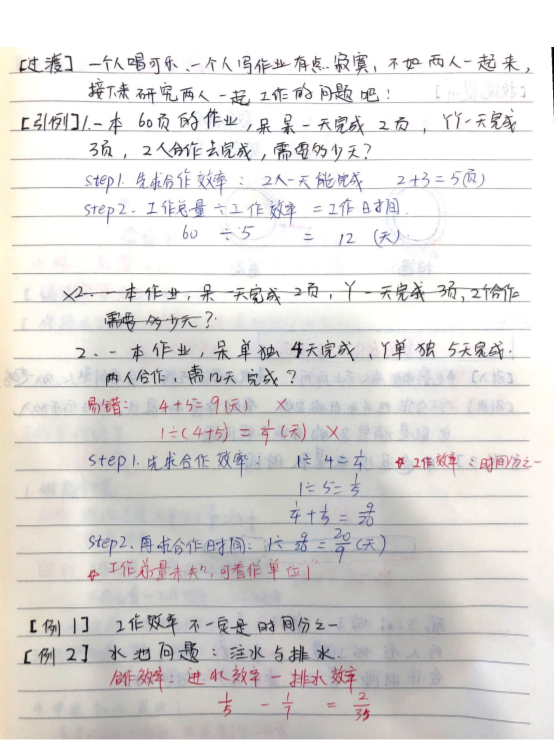 [过渡] 一个人喝可乐、一个人写作业有点寂寞，不如两人一起来，
接下来研究两人一起工作的问题吧！
[引例]1.一本60页的作业，呆呆一天完成2页，丫丫一天完成
3页，2人合作去完成，需要多少天？
step1.先求合作效率：2人一天能完成 2+3=5(页)
step2.工作总量÷工作效率=工作时间.
60 ÷5 = 12 (天)
×2.一本作业，呆一天完成2页，丫一天完成3页，2个合作
需要多少天？
2.一本作业，呆单独4天完成，丫单独5天完成.
两人合作，需几天完成？
易错：4+5=9(天) ×
1÷(4+5)=1/9(天) ×
step1.先求合作效率： 1÷4=1/4 *工作效率：时间分之一
1÷5=1/5
1/4+1/5=9/20
step2.再求合作时间：1÷9/20=20/9(天)
*工作总量未知，可看作单位1
[例1] 工作效率不一定是时间分之一
[例2] 水池问题：注水与排水.
合作效率：进水效率-排水效率
1/5 - 1/7 = 2/35